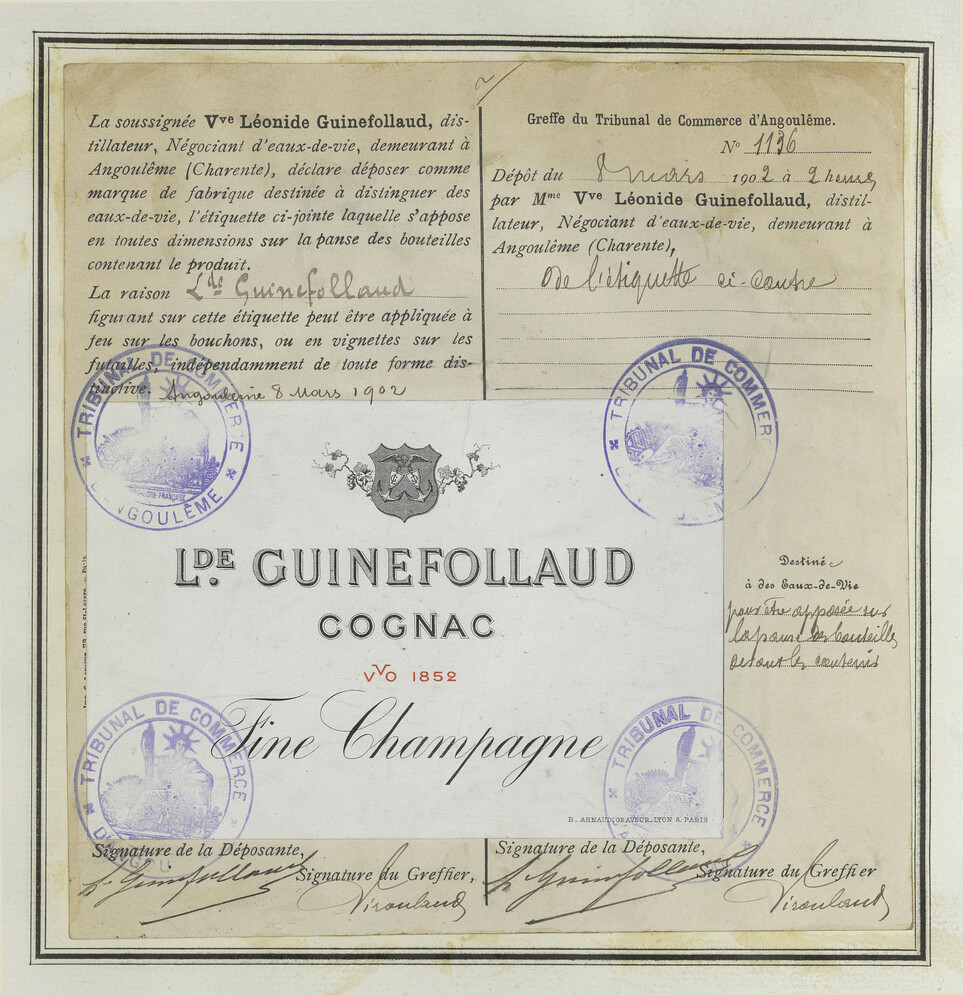 La soussignée Vve Léonide Guinefollaud, dis-
tillateur, Négociant d'eaux-de-vie, demeurant à
Angoulême (Charente), déclare déposer comme
marque de fabrique destinée à distinguer des
eaux-de-vie, l'étiquette ci-jointe laquelle s'appose
en toutes dimensions sur la panse des bouteilles
contenant le produit.
La raison Lde Guinefollaud
figurant sur cette étiquette peut être appliquée à
feu sur les bouchons, ou en vignettes sur les
futailles, indépendamment de toute forme dis-
tinctive. Angoulême 8 Mars 1902
Greffe du Tribunal de Commerce d'Angoulême.
No 1136
Dépôt du 8 mars 1902 à 2 heures
par Mme Vve Léonide Guinefollaud, distil-
lateur, Négociant d'eaux-de-vie, demeurant à
Angoulême (Charente),
de l'étiquette ci-contre
TRIBUNAL DE COMMERCE
ANGOULÊME
TRIBUNAL DE COMMER
LDE GUINEFOLLAUD
COGNAC
VVO 1852
Fine Champagne
B. ARNAUD, GRAVEUR, LYON & PARIS
Destiné
à des Eaux-de-Vie
pour être apposée sur
la panse des bouteilles
TRIBUNAL DE COMMERCE
TRIBUNAL DE COMMERCE
Signature de la Déposante,
L. Guinefollaud
Signature du Greffier,
Signature de la Déposante,
L. Guinefollaud
Signature du Greffier